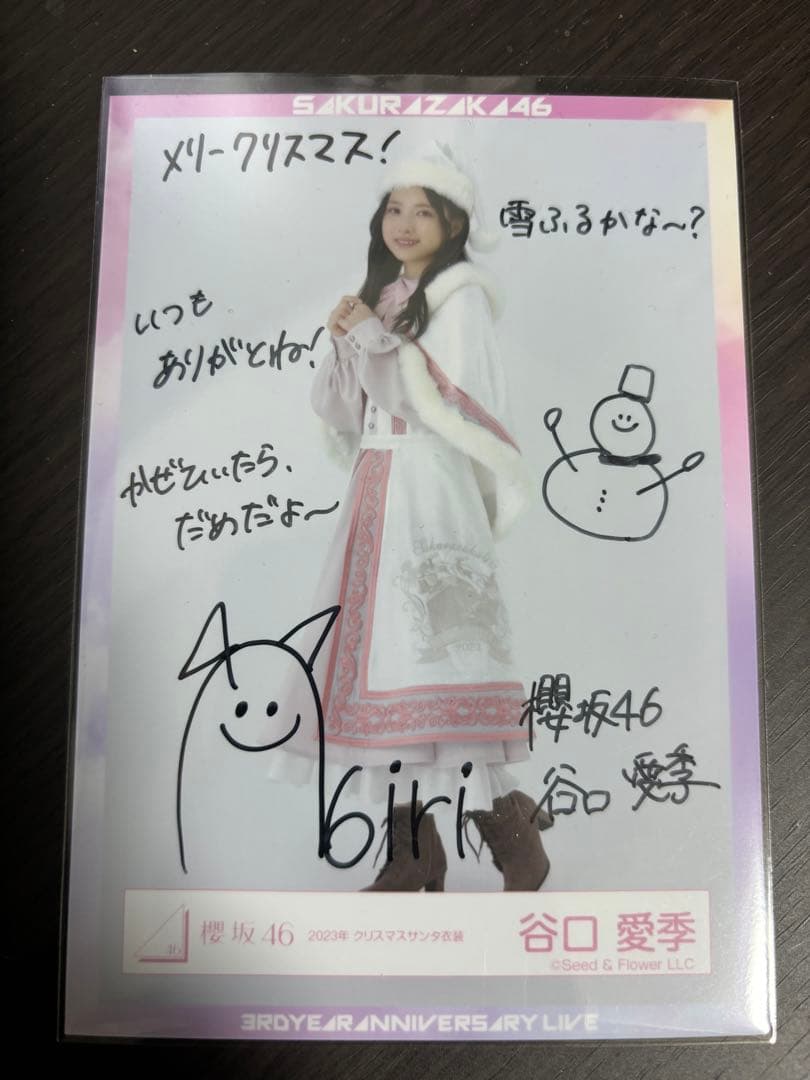 SAKURAZAKA46
メリークリスマス!
雪ふるかな〜?
いつも
ありがとね!
かぜひいたら、
だめだよ〜
Airi
櫻坂46
谷口 愛季
46 櫻坂46 2023年 クリスマスサンタ衣装 谷口 愛季
©Seed & Flower LLC
3RDYEARANNIVERSARY LIVE